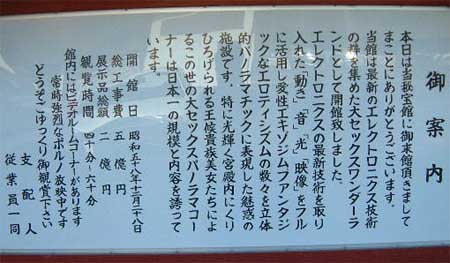 御案内
本日は当秘宝館に御来館頂きまして
まことにありがとうございます。
当館は最新のエレクトロニクス技術
の粋を集めた大セックスワンダーラ
ンドとして開館致しました。
エレクトロニクスの最新技術を取り
入れた「動き」「音」「光」「映像」をフル
に活用し愛性エキゾジムファンタジ
ックなエロティシズムの数々を立体
的パノラマチックに表現した魅惑の
施設です。特に光輝く宮殿内にくり
ひろげられる王侯貴族美女たちによ
るこの世の大セックスパノラマコー
ナーは日本一の規模と内容を誇って
います。
開館日 昭和五十八年十二月二十八日
総工事費 五億円
展示品総額 二億円
観覧時間 四十分〜六十分
館内にはビデオルームコーナーがあります
常時強烈なポルノ放映中です
どうぞごゆっくり御観賞下さい
支配人
従業員一同